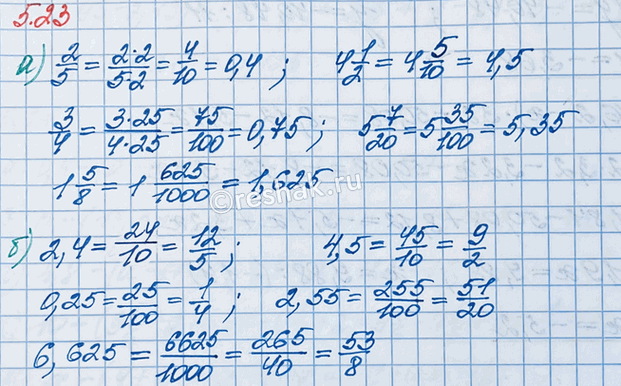 5.23
а) 2/5 = 2·2/5·2 = 4/10 = 0,4 ; 4 1/2 = 4 5/10 = 4,5
3/4 = 3·25/4·25 = 75/100 = 0,75 ; 5 7/20 = 5 35/100 = 5,35
1 5/8 = 1 625/1000 = 1,625
©reshak.ru
б) 2,4 = 24/10 = 12/5 ; 4,5 = 45/10 = 9/2
0,25 = 25/100 = 1/4 ; 2,55 = 255/100 = 51/20
6,625 = 6625/1000 = 265/40 = 53/8